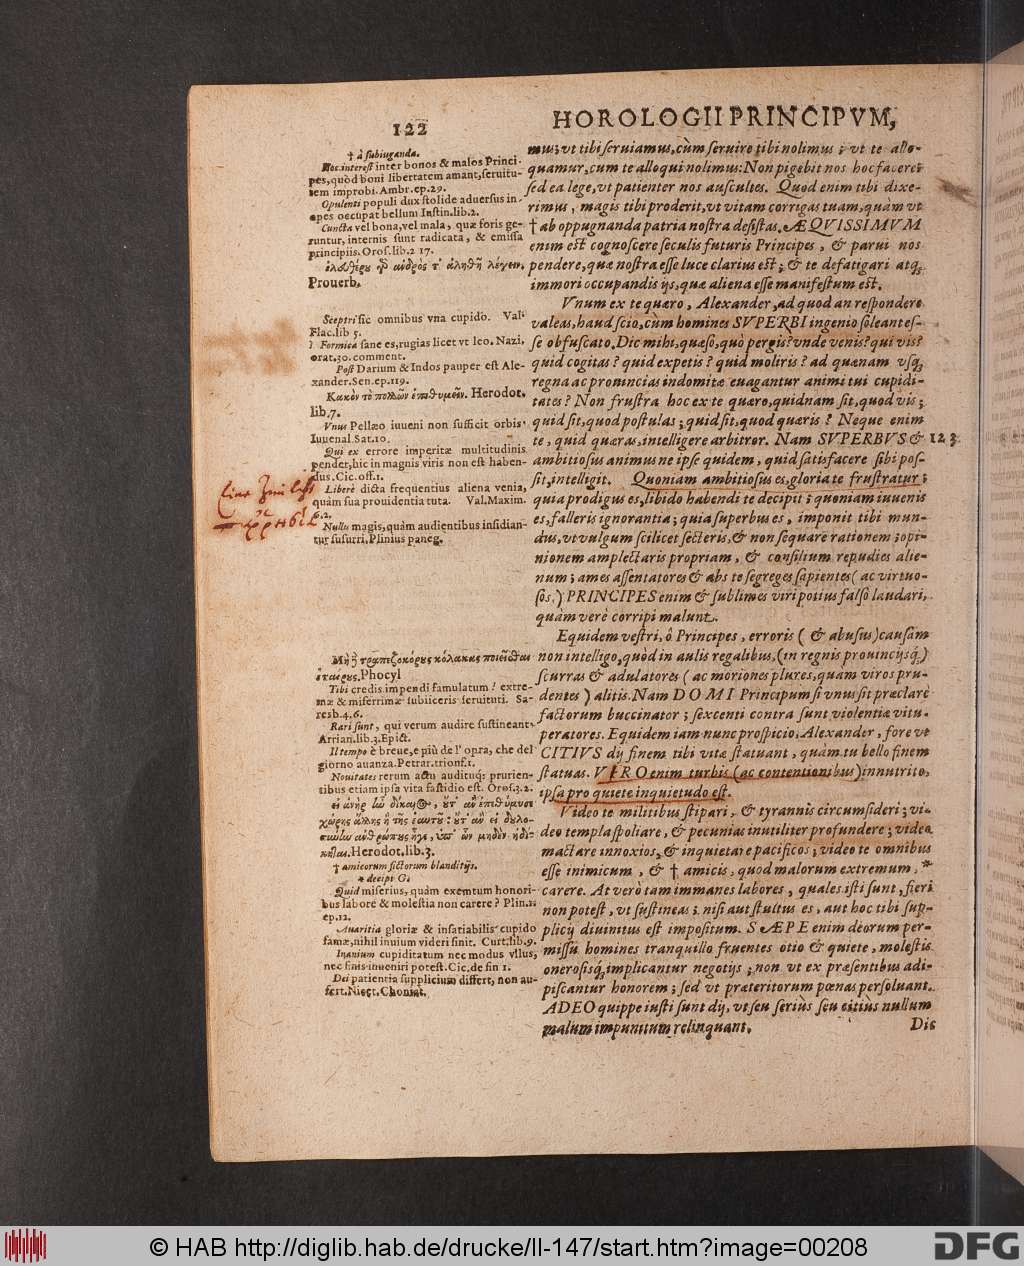 122
HOROLOGII PRINCIPVM,
† à subiuganda.
Hoc interest inter bonos & malos Princi-
pes, quòd boni libertatem amant, seruitu-
tem improbi. Ambr. ep. 29.
Opulenti populi dux stolide aduersus in-
opes occupat bellum Iustin. lib. 2.
Cuncta vel bona, vel mala, quæ foris ge-
runtur, internis sunt radicata, & emissa
principiis. Oros. lib. 2 17.
Prouerb.
Sceptri sic omnibus vna cupido. Val.
Flac. lib 5.
Formica sane es, rugias licet vt leo. Nazi.
orat. 30. comment.
Post Darium & Indos pauper est Ale-
xander. Sen. ep. 119.
Herodot.
lib. 7.
Vnus Pellæo iuueni non sufficit orbis.
Iuuenal Sat. 10.
Qui ex errore imperitæ multitudinis
pendet, hic in magnis viris non est haben-
dus. Cic. off. 1.
Liberè dicta frequentius aliena venia,
quàm sua prouidentia tuta. Val. Maxim.
6. 2.
Nullu magis, quàm audientibus insidian-
tur susurri. Plinius paneg.
Phocyl
Tibi credis impendi famulatum? extre-
mæ & miserrimæ subiiceris seruituti. Sa-
resb. 4. 6.
Rari sunt, qui verum audire sustineant.
Arrian. lib. 3. Epict.
Il tempo è breue, e più de l' opra, che del
giorno auanza. Petrar. trionf. t.
Nouitates rerum actu auditúq; prurien-
tibus etiam ipsa vita fastidio est. Oros. 3. 2.
Herodot. lib. 3.
† amicorum fictorum blanditijs.
* decipi G.
Quid miserius, quàm exemtum honori-
bus labore & molestia non carere? Plin. 1.
ep. 12.
Auaritia gloriæ & insatiabilis cupido
famæ, nihil inuium videri sinit. Curt. lib. 9.
Inanium cupiditatum nec modus vllus,
nec finis inueniri potest. Cic. de fin 1.
Dei patientia supplicium differt, non au-
fert. Nicet. Choniat.
mus; vt tibi seruiamus, cùm seruire tibi nolimus; vt te allo-
quamur, cum te alloqui nolimus: Non pigebit nos hoc facere;
sed ea lege, vt patienter nos auscultes. Quod enim tibi dixe-
rimus, magis tibi proderit, vt vitam corrigas tuam, quàm vt
† ab oppugnanda patria nostra desistas. ÆQVISSIMVM
enim est cognoscere seculis futuris Principes, & parui nos
pendere, quæ nostra esse luce clarius est; & te defatigari atq;
immori occupandis ijs, quæ aliena esse manifestum est.
Vnum ex te quæro, Alexander, ad quod an respondere
valeas, haud scio, cùm homines SVPERBI ingenio soleant es-
se obfuscato. Dic mihi, quæso, quò pergis? vnde venis? qui vis?
quid cogitas? quid expetis? quid moliris? ad quænam vsq;
regna ac prouincias indomitæ euagantur animi tui cupidi-
tates? Non frustra hoc ex te quæro, quidnam sit, quod vis;
quid sit, quod postulas; quid sit, quod quæris? Neque enim
te, quid quæras, intelligere arbitror. Nam SVPERBVS & 123
ambitiosus animus ne ipse quidem, quid satisfacere sibi pos-
sit, intelligit. Quoniam ambitiosus es, gloria te frustratur;
quia prodigus es, libido habendi te decipit; quoniam iuuenis
es, falleris ignorantia; quia superbus es, imponit tibi mun-
dus, vt vulgum scilicet secteris, & non sequare rationem; opi-
nionem amplectaris propriam, & consilium repudies alie-
num; ames assentatores & abs te segreges sapientes (ac virtuo-
sos.) PRINCIPES enim & sublimes viri potius falsò laudari,
quàm verè corripi malunt.
Equidem vestri, ô Principes, erroris (& abusus) causam
non intelligo, quòd in aulis regalibus, (in regnis prouincijsq;)
scurras & adulatores (ac moriones plures, quam viros pru-
dentes) alitis. Nam DOMI Principum si vnus sit præclarè
factorum buccinator; sexcenti contra sunt violentiæ vitu-
peratores. Equidem iam nunc prospicio, Alexander, fore vt
CITIVS dij finem tibi vitæ statuant, quàm tu bello finem
statuas. VIRO enim turbis (ac contentionibus) innutrito,
ipsa pro quiete inquietudo est.
Video te militibus stipari, & tyrannis circumsideri; vi-
deo templa spoliare, & pecunias inutiliter profundere; video
mactare innoxios, & inquietare pacificos; video te omnibus
esse inimicum, & † amicis, quod malorum extremum, *
carere. At verò tam immanes labores, quales isti sunt, fieri
non potest, vt sustineas; nisi aut stultus es, aut hoc tibi sup-
plicij diuinitus est impositum. SÆPE enim deorum per-
missu homines tranquillo fruentes otio & quiete, molestis
onerosisq; implicantur negotijs; non vt ex præsentibus adi-
piscantur honorem; sed vt præteritorum pœnas persoluant.
ADEO quippe iusti sunt dij, vt seu seriùs seu citiùs nullum
malum impunitum relinquant.
Dic
© HAB http://diglib.hab.de/drucke/ll-147/start.htm?image=00208
DFG